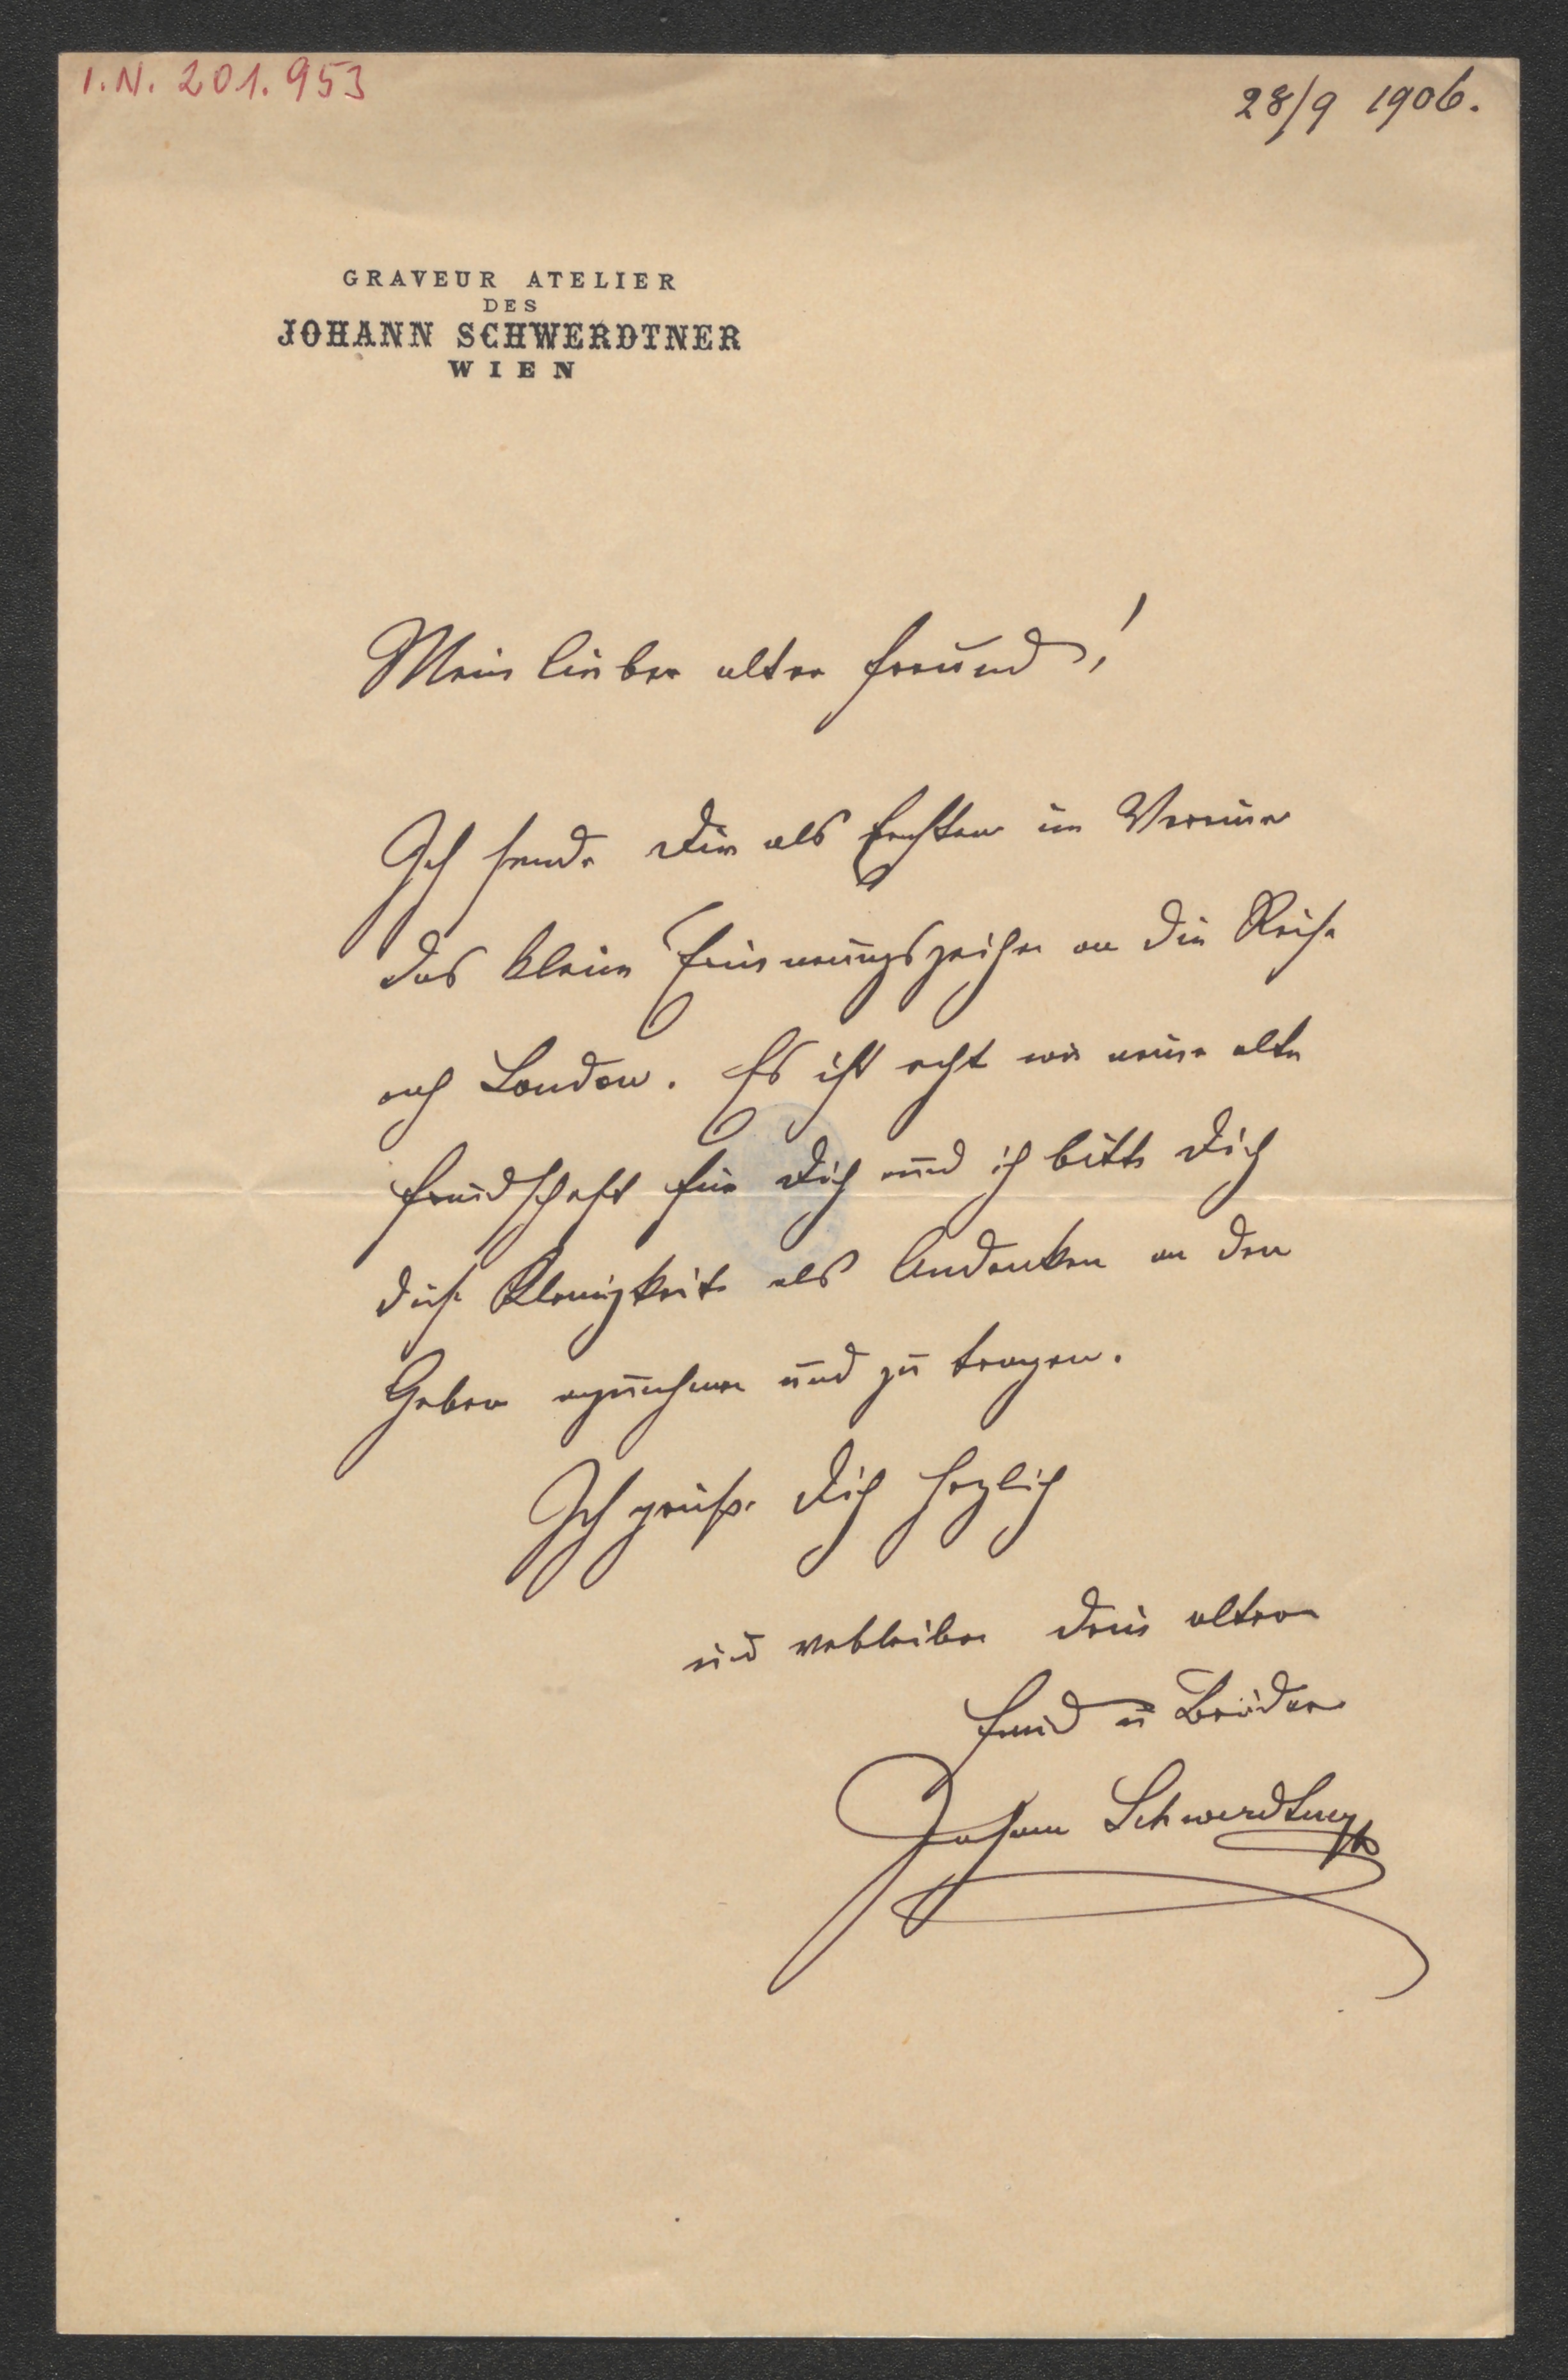 I.N. 201.953
28/9 1906.
GRAVEUR ATELIER
DES
JOHANN SCHWERDTNER
WIEN
Mein lieber alter Freund!
Ich sende Dir als Ersten im Vereine
das kleine Erinnerungszeichen an die Reise
nach London. Es ist echt wie meine alte
Freundschaft für Dich und ich bitte Dich
diese Kleinigkeit als Andenken an den
Geber anzunehmen und zu tragen.
Ich grüße Dich herzlich
und verbleibe Dein alter
Freund u Bruder
Johann Schwerdtner